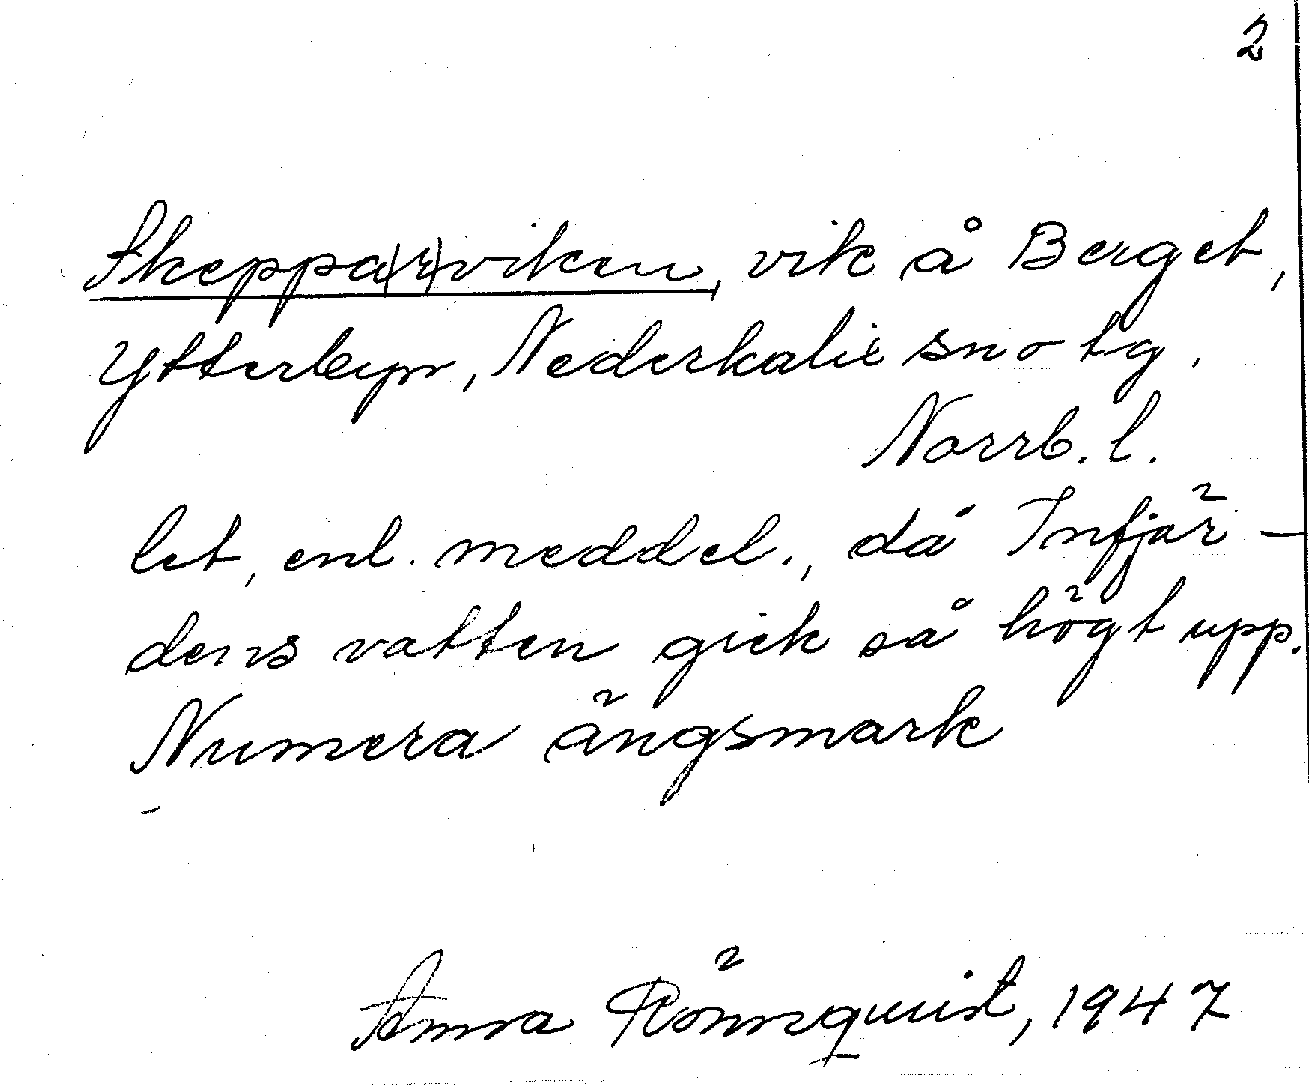 2
Skeppa(r)viken, vik å Berget,
Ytterbyn, Nederkalix sn o tg.
Norrb. l.
let, enl. meddel., då Infjär-
dens vatten gick så högt upp.
Numera ängsmark
Anna Rönnquist, 1947